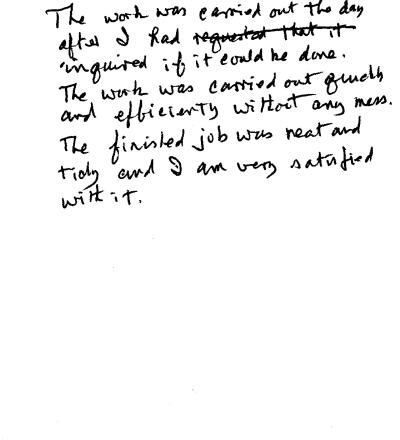 The work was carried out the day
after I had requested that it
inquired if it could be done.
The work was carried out quickly
and efficiently without any mess.
The finished job was neat and
tidy and I am very satisfied
with it.